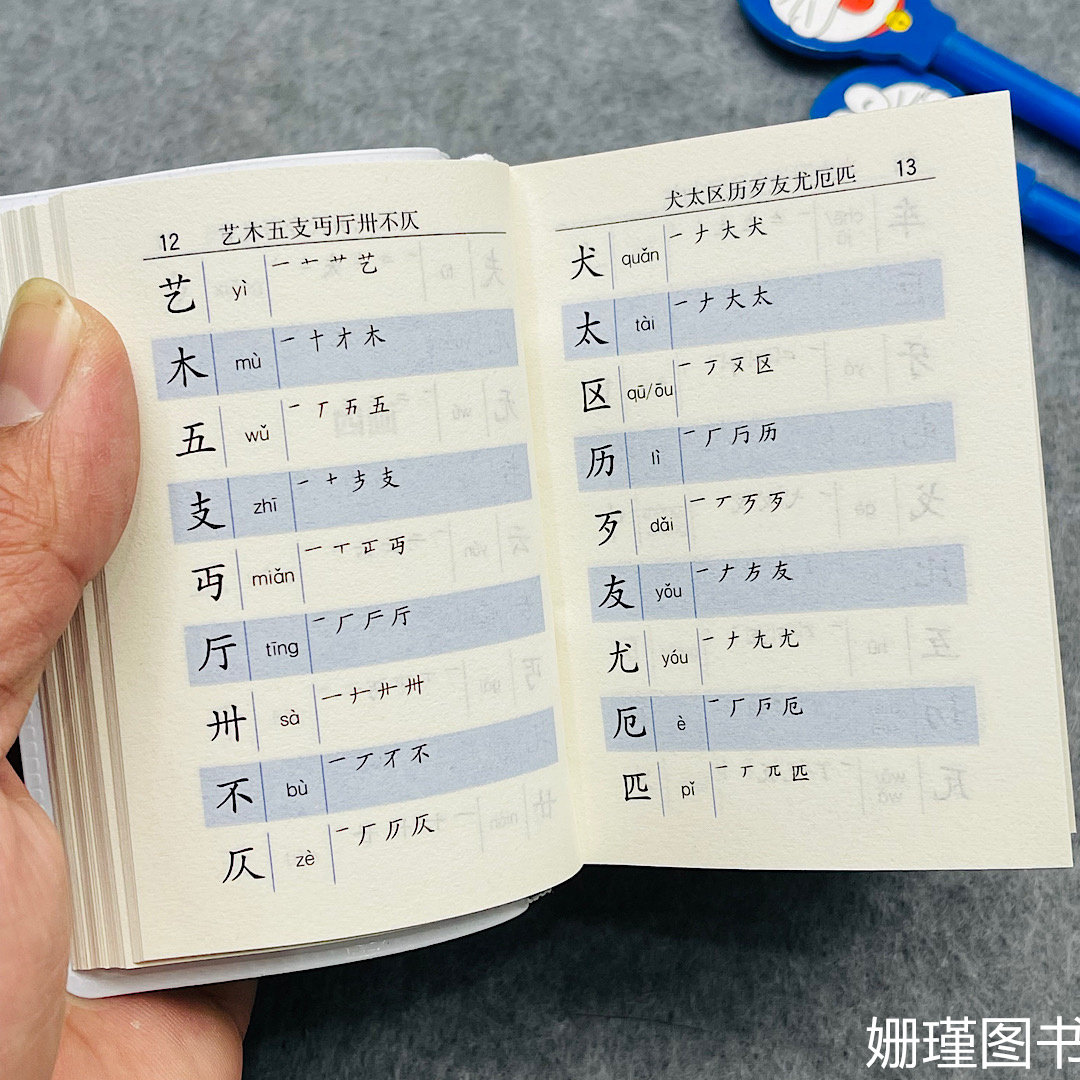 12 艺木五支丏厅卅不仄
艺 yì 一 十 艹 艺
木 mù 一 十 才 木
五 wǔ 一 丅 五
支 zhī 一 十 支
丏 miǎn 一 丅 丏
厅 tīng 一 厂 厅
卅 sà 一 卅
不 bù 一 丆 不
仄 zè 一 厂 仄
犬太区历歹友尤厄匹 13
犬 quǎn 一 ナ 大 犬
太 tài 一 ナ 大 太
区 qū/ōu 一 丆 区
历 lì 一 厂 历
歹 dǎi 一 丆 歹
友 yǒu 一 ナ 友
尤 yóu 一 ナ 尢 尤
厄 è 一 厂 厄
匹 pǐ 一 丅 兀 匹
姗瑾图书